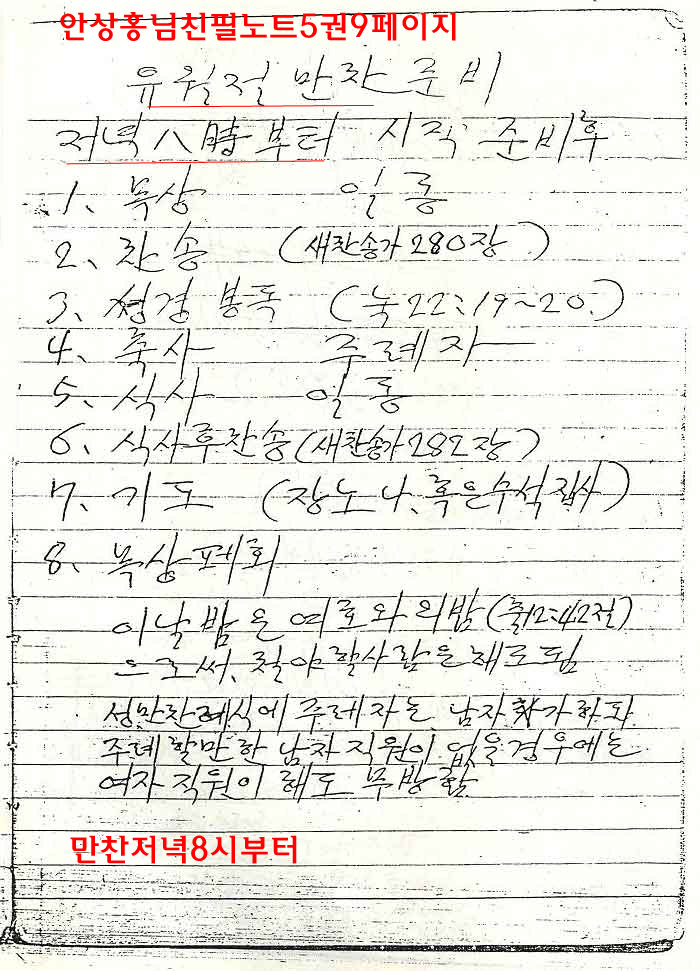 안상홍님친필노트5권9페이지
유월절 만찬 준비
저녁 八時부터 시작 준비후
1、묵상 일동
2、찬송 (새찬송가 280장)
3、성경봉독 (눅22:19~20.)
4、축사 주례자
5、식사 일동
6、식사후찬송 (새찬송가282장)
7、기도 (장노나、혹은수석집사)
8、묵상폐회
이날밤은 여호와의밤 (출12:42절)
으로써、철야할사람은해도됨
성만찬예식에 주례자는 남자가하되
주례할만한 남자직원이 없을경우에는
여자직원이 해도 무방함
만찬저녁8시부터